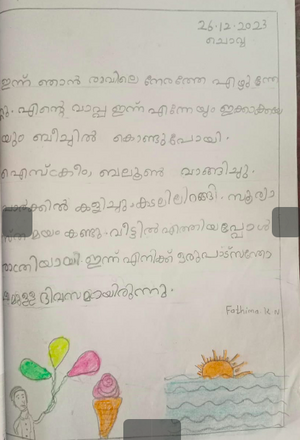 26.12.2023
ചൊവ്വ
ഇന്ന് ഞാൻ രാവിലെ നേരത്തേ എഴുന്നേ
റ്റു. എന്റെ വാപ്പ ഇന്ന് എന്നേയും ഇക്കാക്കയേ
യും ബീച്ചിൽ കൊണ്ടുപോയി.
ഐസ്ക്രീം, ബലൂൺ വാങ്ങിച്ചു.
പാർക്കിൽ കളിച്ചു. കടലിലിറങ്ങി. സൂര്യാ
സ്തമയം കണ്ടു. വീട്ടിൽ എത്തിയപ്പോൾ
രാത്രിയായി. ഇന്ന് എനിക്ക് ഒരുപാട്സന്തോ
ഷമുള്ള ദിവസമായിരുന്നു.
Fathima K N